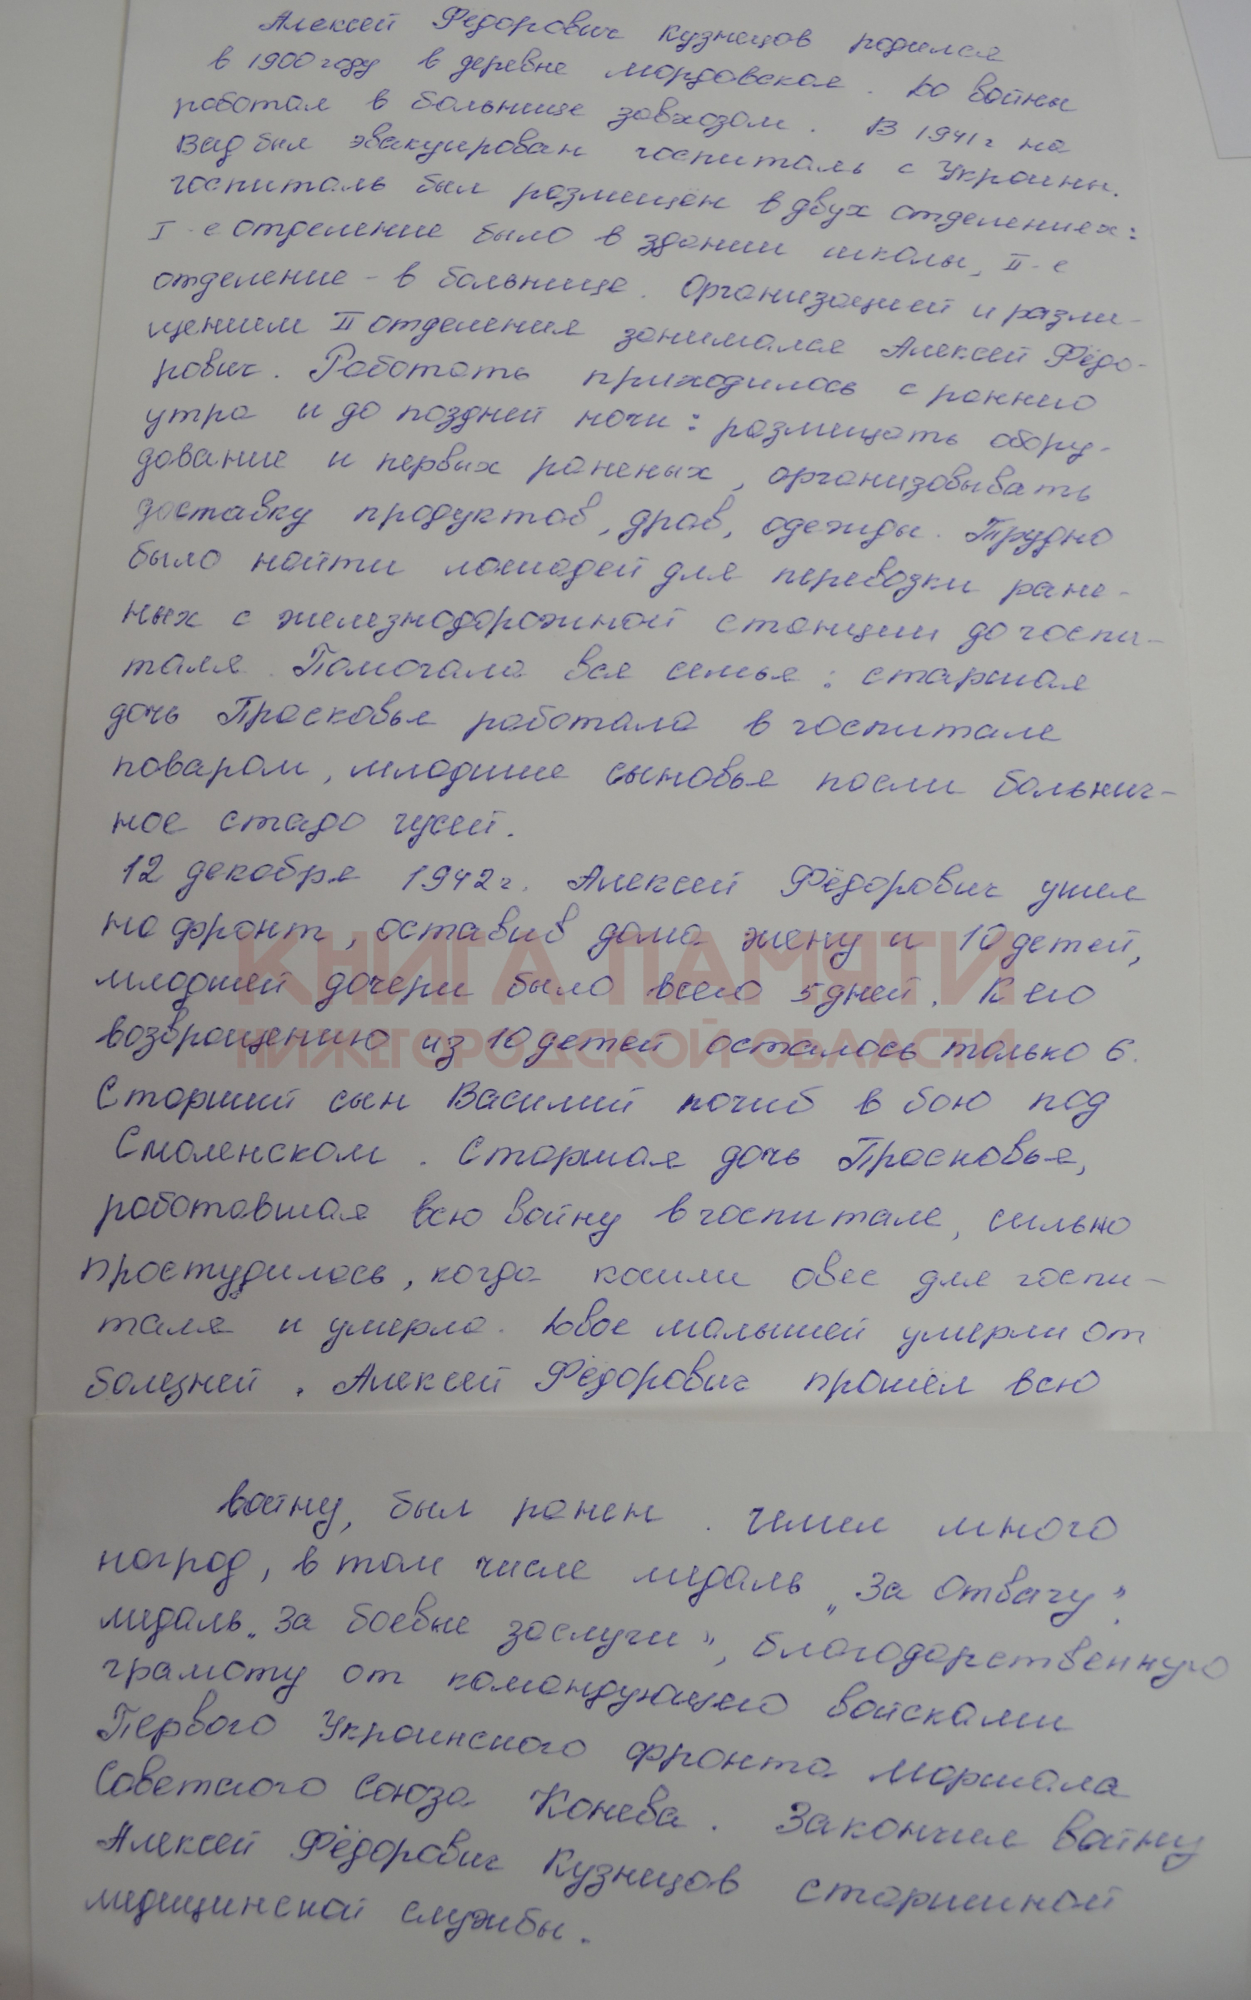 Алексей Фёдорович Кузнецов родился
в 1900 году в деревне Мордовская. До войны
работал в больнице завхозом. В 1941 г на
Вад был эвакуирован госпиталь с Украины.
Госпиталь был размещён в двух отделениях:
I-е отделение было в здании школы, II-е
отделение - в больнице. Организацией и разме-
щением II отделения занимался Алексей Фёдо-
рович. Работать приходилось с раннего
утра и до поздней ночи: размещать обору-
дование и первых раненых, организовывать
доставку продуктов, дров, одежды. Трудно
было найти лошадей для перевозки ране-
ных с железнодорожной станции до госпи-
таля. Помогала вся семья: старшая
дочь Прасковья работала в госпитале
поваром, младшие сыновья пасли больнич-
ное стадо гусей.
12 декабря 1942 г. Алексей Фёдорович ушел
на фронт, оставив дома жену и 10 детей,
КНИГА ПАМЯТИ
младшей дочери было всего 5 дней. К его
НИЖЕГОРОДСКОЙ ОБЛАСТИ
возвращению из 10 детей осталось только 6.
Старший сын Василий погиб в бою под
Смоленском. Старшая дочь Прасковья,
работавшая всю войну в госпитале, сильно
простудилась, когда косили овес для госпи-
таля и умерла. Двое малышей умерли от
болезней. Алексей Фёдорович прошёл всю
войну, был ранен. Имел много
наград, в том числе медаль „За отвагу",
медаль „За боевые заслуги", благодарственную
грамоту от командующего войсками
Первого Украинского фронта Маршала
Советского Союза Конева. Закончил войну
Алексей Фёдорович Кузнецов старшиной
медицинской службы.